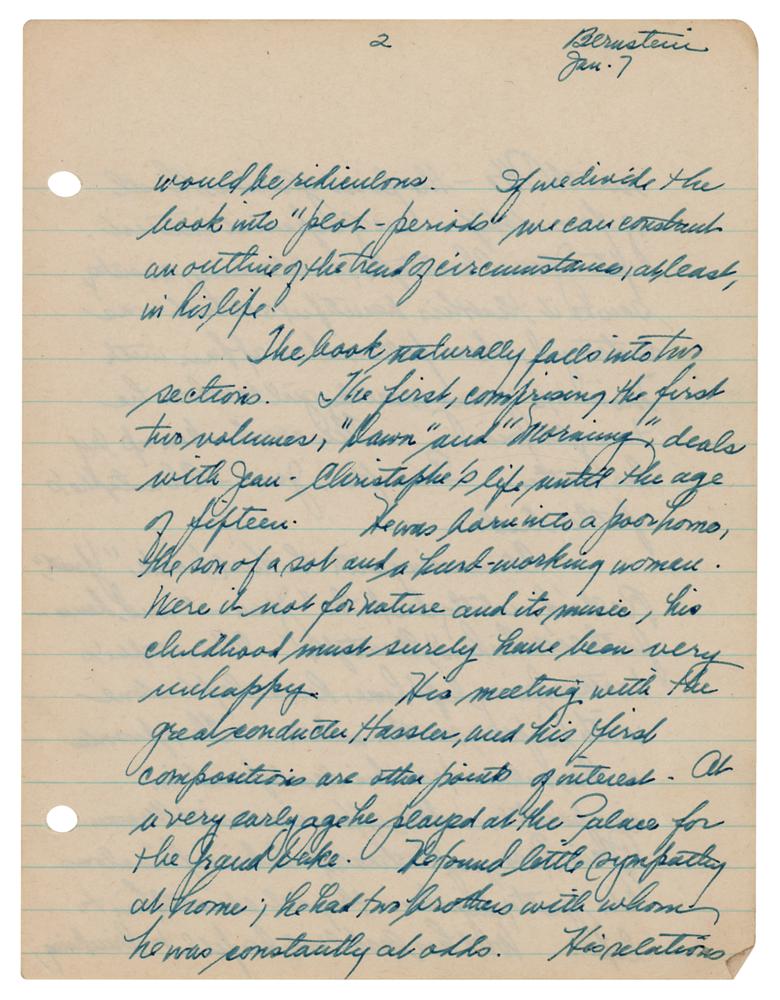 2
Bernstein
Jan. 7
would be ridiculous. If we divide the
book into "plot-periods" we can construct
an outline of the trend of circumstance, at least,
in his life.
The book naturally falls into two
sections. The first, comprising the first
two volumes, "Dawn" and "Morning", deals
with Jean-Christophe's life until the age
of fifteen. He was born into a poor home,
the son of a sot and a hard-working woman.
Were it not for nature and its music, his
childhood must surely have been very
unhappy. His meeting with the
great conductor Hassler, and his first
compositions are other points of interest. At
a very early age he played at the Palace for
the Grand Duke. He found little sympathy
at home; he had two brothers with whom
he was constantly at odds. His relations